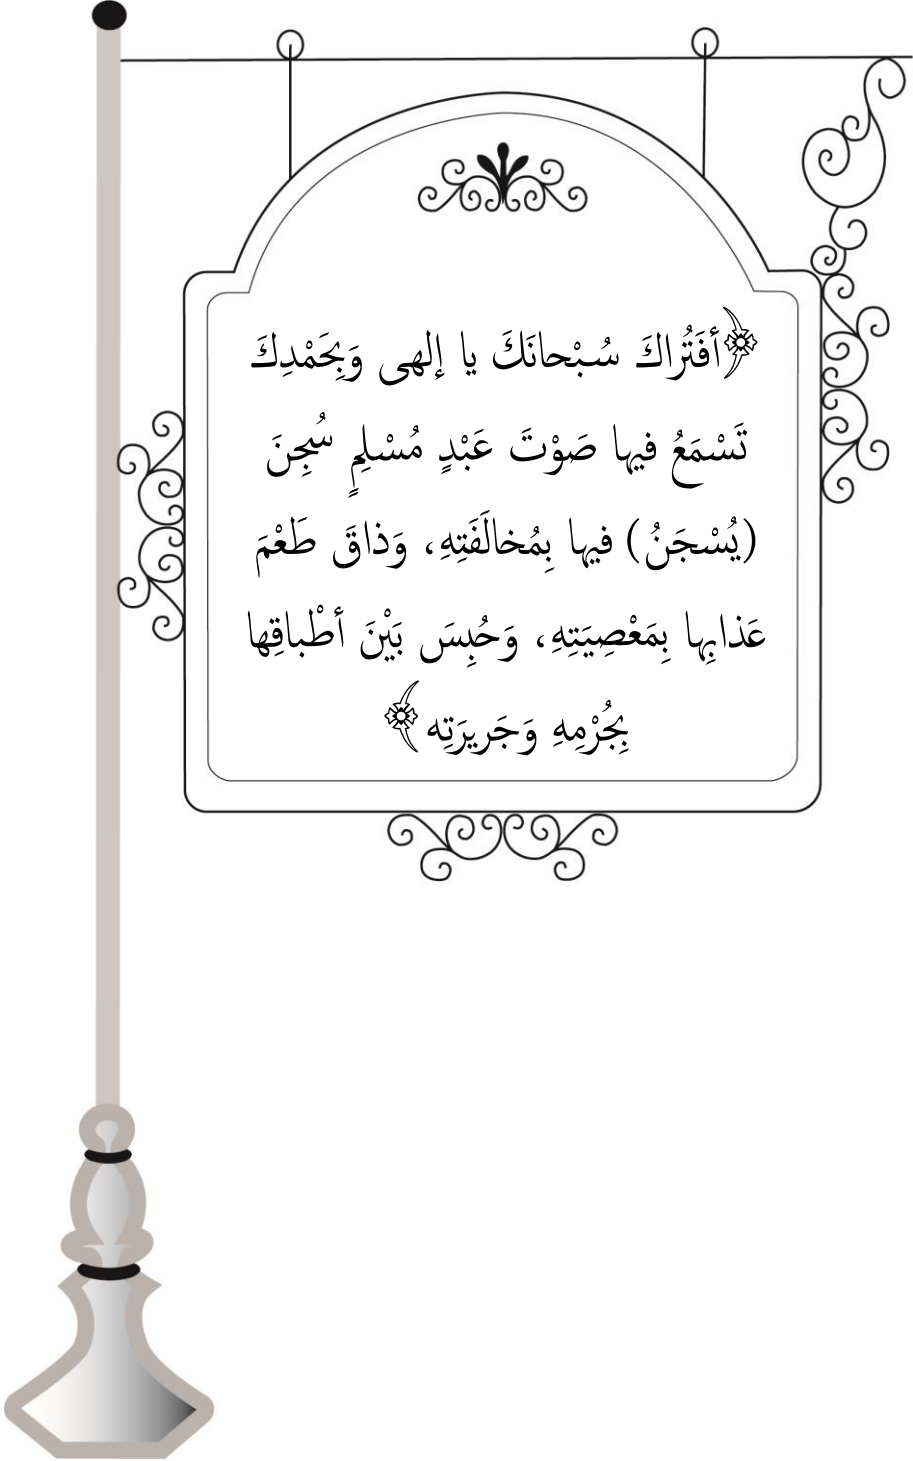 ﴿أفَتُراكَ سُبْحانَكَ يا إلهى وَبِحَمْدِكَ
تَسْمَعُ فيها صَوْتَ عَبْدٍ مُسْلِمٍ سُجِنَ
(يُسْجَنُ) فيها بِمُخالَفَتِهِ، وَذاقَ طَعْمَ
عَذابِها بِمَعْصِيَتِهِ، وَحُبِسَ بَيْنَ أطْباقِها
بِجُرْمِهِ وَجَريرَتِه﴾